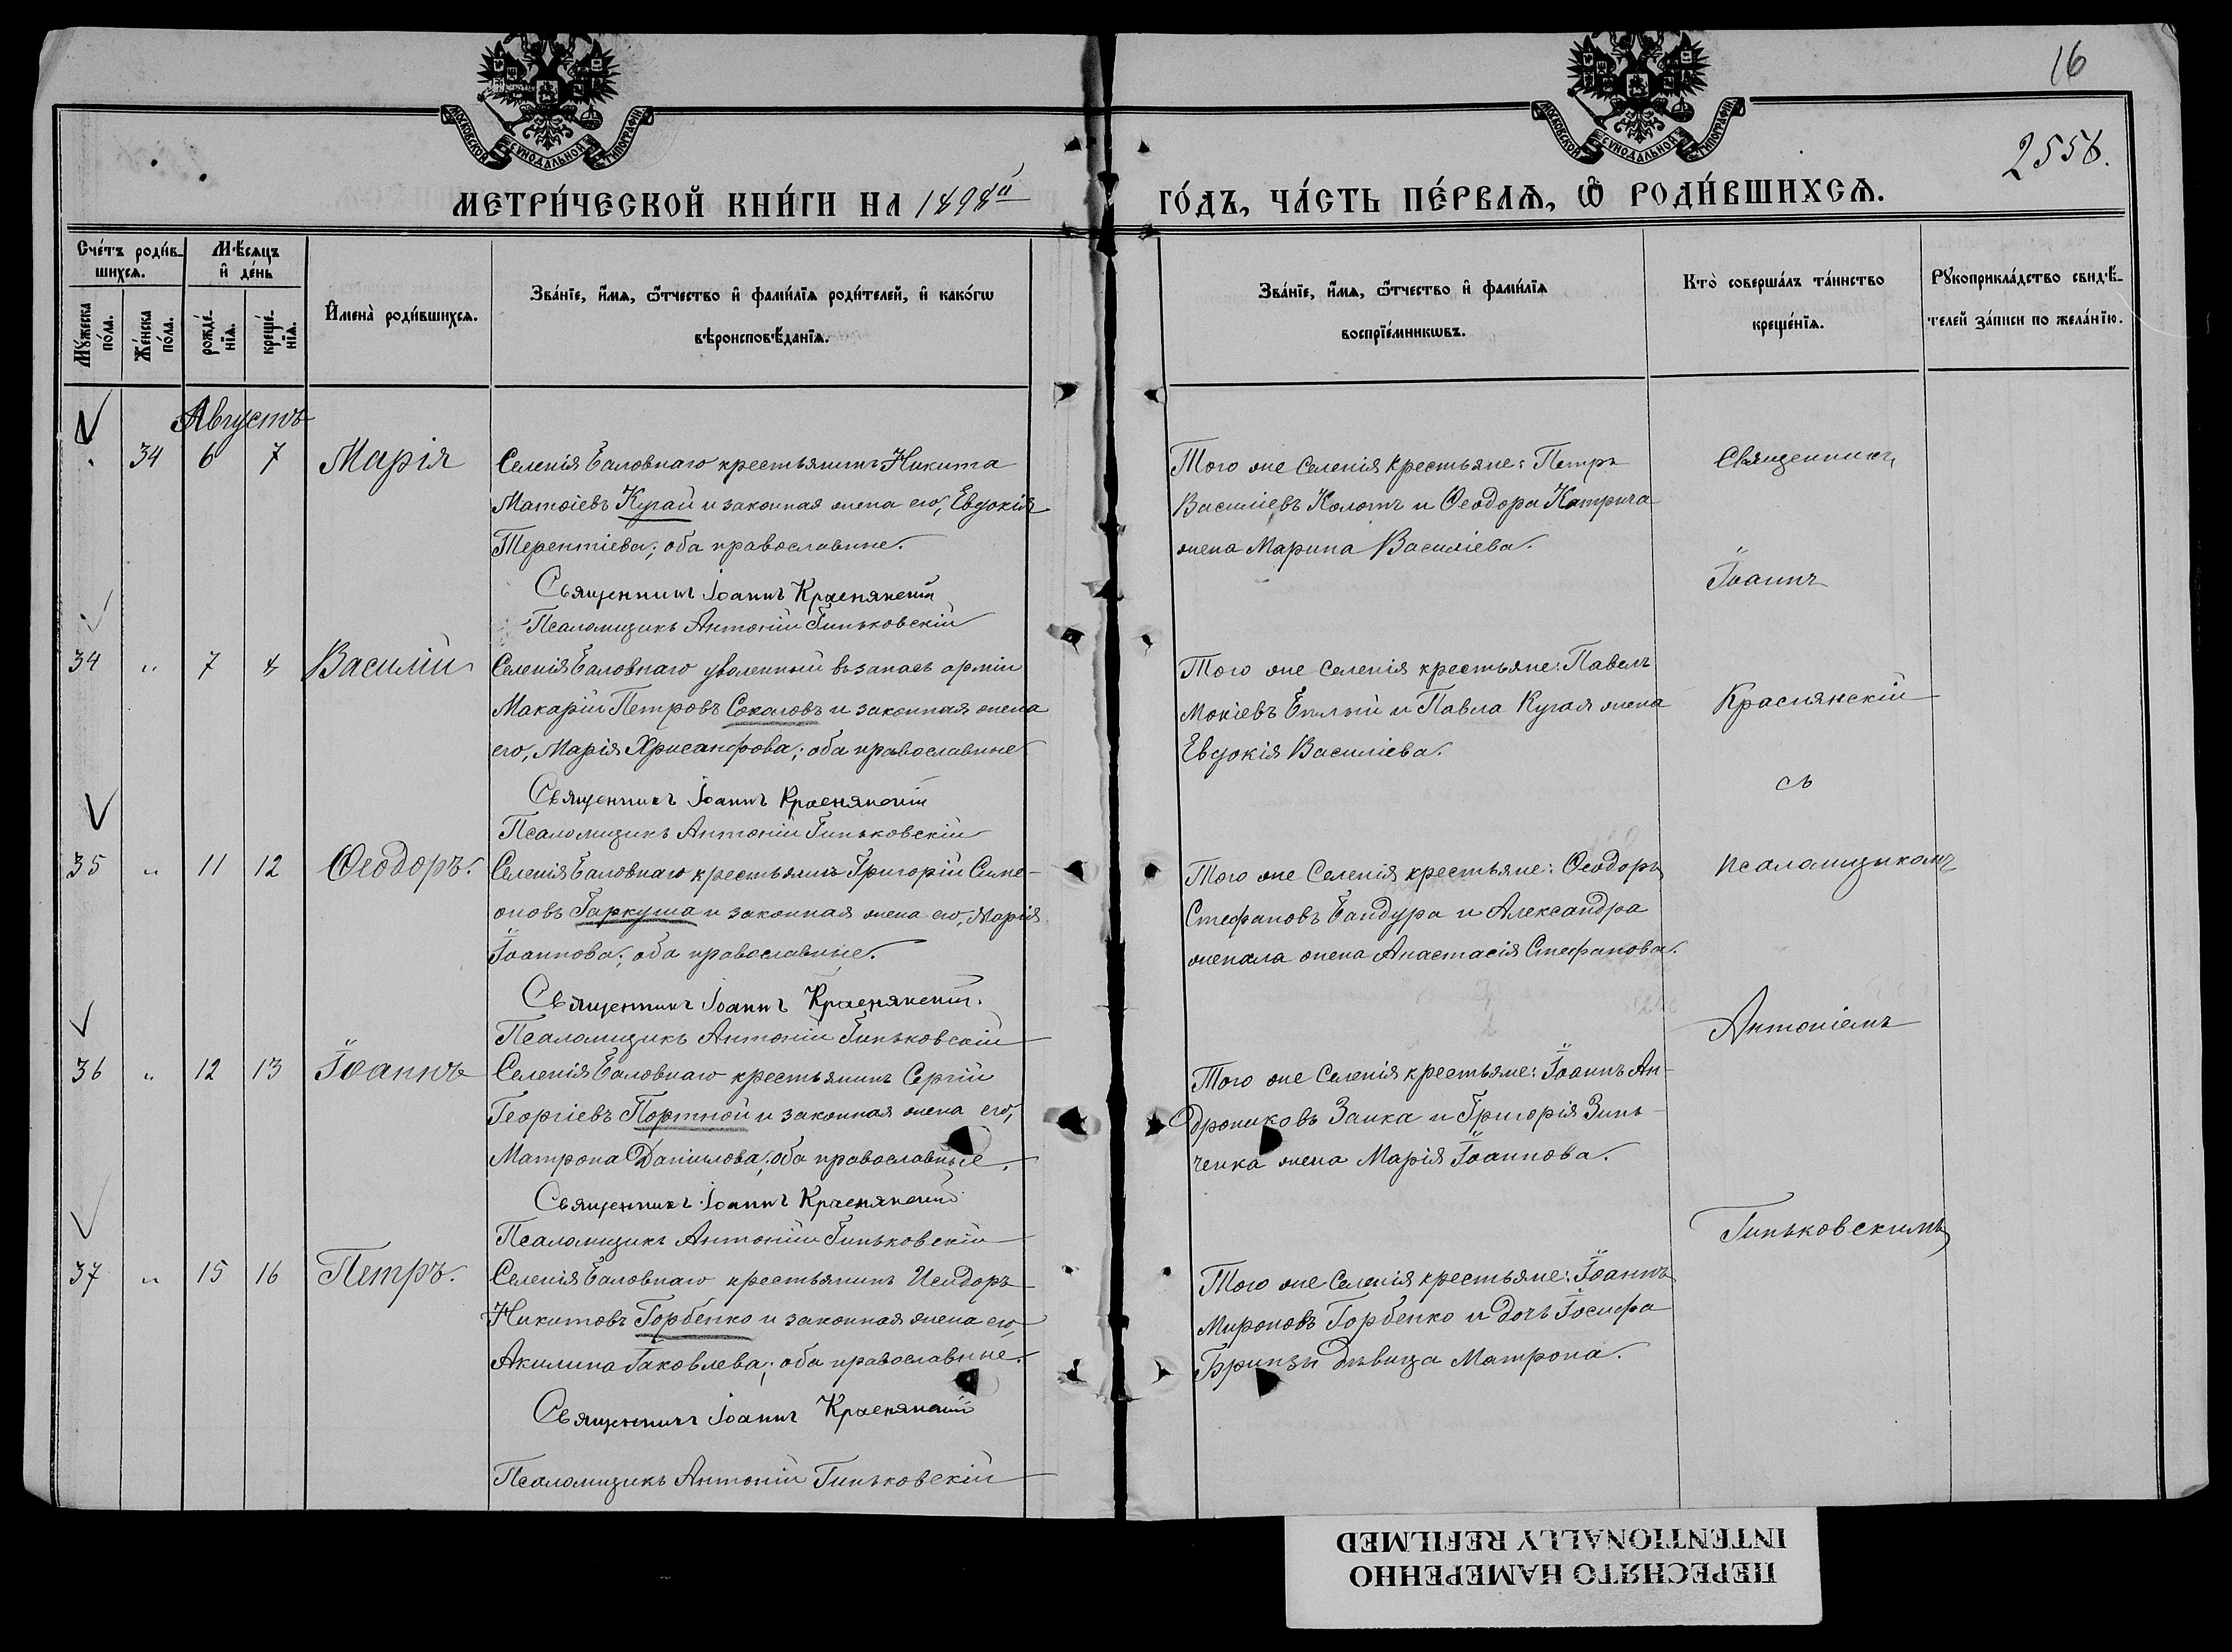 16
2558.
МОСКОВСКОЙ СѴНОДАЛЬНОЙ ТИПОГРАФІИ
МОСКОВСКОЙ СѴНОДАЛЬНОЙ ТИПОГРАФІИ
МЕТРИ́ЧЕСКОЙ КНИ́ГИ НА 1898й
ГО́ДЪ, ЧА́СТЬ ПЕ́РВАѦ, Ѡ РОДИ́ВШИХСѦ.
Сче́тъ роди́в-
шихсѧ.
Мꙋ́жеска по́ла.
Же́нска по́ла.
Мѣ́сѧцъ
и҆ де́нь
рожде́-нїѧ.
креще́-нїѧ.
И҆мена̀ роди́вшихсѧ.
Зва́нїе, и҆́мѧ, ѻ҆́тчество и҆ фами́лїѧ роди́телей, и҆ како́гѡ
вѣроисповѣ́данїѧ.
Зва́нїе, и҆́мѧ, ѻ҆́тчество и҆ фами́лїѧ
воспрїе́мникѡвъ.
Кто̀ соверша́лъ та́инство
креще́нїѧ.
Рꙋкоприкла́дство свидѣ́-
телей за́писи по жела́нїю.
Августъ
34 6 7 Марія
Селенія Баловнаго крестьянинъ Никита
Матѳіевъ Кугай и законная жена его, Евдокія
Терентіева; оба православные.
Священникъ Іоаннъ Краснянскій
Псаломщикъ Антоній Гиньковскій
Того же селенія крестьяне: Петръ
Василіевъ Колотъ и Ѳеодора Катрича
жена Марина Василіева.
34 „ 7 8 Василій
Селенія Баловнаго уволенный въ запасъ арміи
Макарій Петровъ Сокаловъ и законная жена
его, Марія Хрисанфова; оба православные
Священникъ Іоаннъ Краснянскій
Псаломщикъ Антоній Гиньковскій
Того же селенія крестьяне: Павелъ
Мокіевъ Бѣлый и Павла Кугая жена
Евдокія Василіева.
35 „ 11 12 Ѳеодоръ.
Селенія Баловнаго крестьянинъ Григорій Симе-
оновъ Гаркуша и законная жена его, Марія
Іоаннова; оба православные.
Священникъ Іоаннъ Краснянскій.
Псаломщикъ Антоній Гиньковскій
Того же Селенія крестьяне: Ѳеодоръ
Стефановъ Бандура и Александра
жена Анастасія Стефанова.
36 „ 12 13 Іоаннъ
Селенія Баловнаго крестьянинъ Сергій
Георгіевъ Портной и законная жена его,
Матрона Даніилова; оба православные.
Священникъ Іоаннъ Краснянскій
Псаломщикъ Антоній Гиньковскій
Того же Селенія крестьяне: Іоаннъ Ан-
дрониковъ Заика и Григорія Зинь-
ченка жена Марія Іоаннова.
37 „ 15 16 Петръ.
Селенія Баловнаго крестьянинъ Исидоръ
Никитовъ Горбенко и законная жена его,
Акилина Іаковлева; оба православные.
Священникъ Іоаннъ Краснянскій
Псаломщикъ Антоній Гиньковскій
Того же Селенія крестьяне: Іоаннъ
Мироновъ Горбенко и дочь Іосифа
Бринзы дѣвица Матрона.
Священникъ
Іоаннъ
Краснянскій
съ
псаломщикомъ
Антоніемъ
Гиньковскимъ
ПЕРЕСНЯТО НАМЕРЕННО
INTENTIONALLY REFILMED